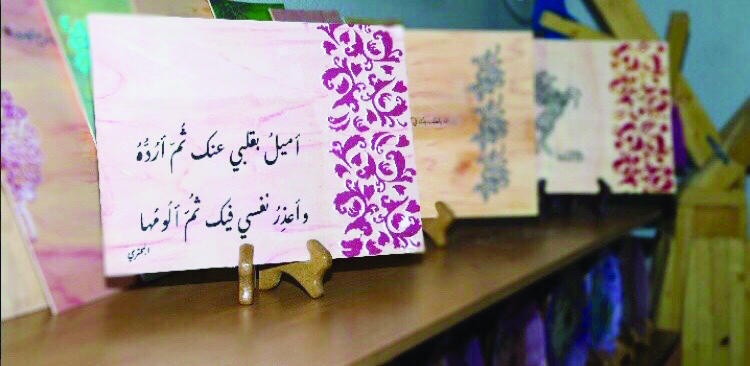 أميلُ بقلبي عنك ثُمَّ أرُدُّهُ
وأعذِرُ نفسي فيك ثمُّ ألومُها
البحتري